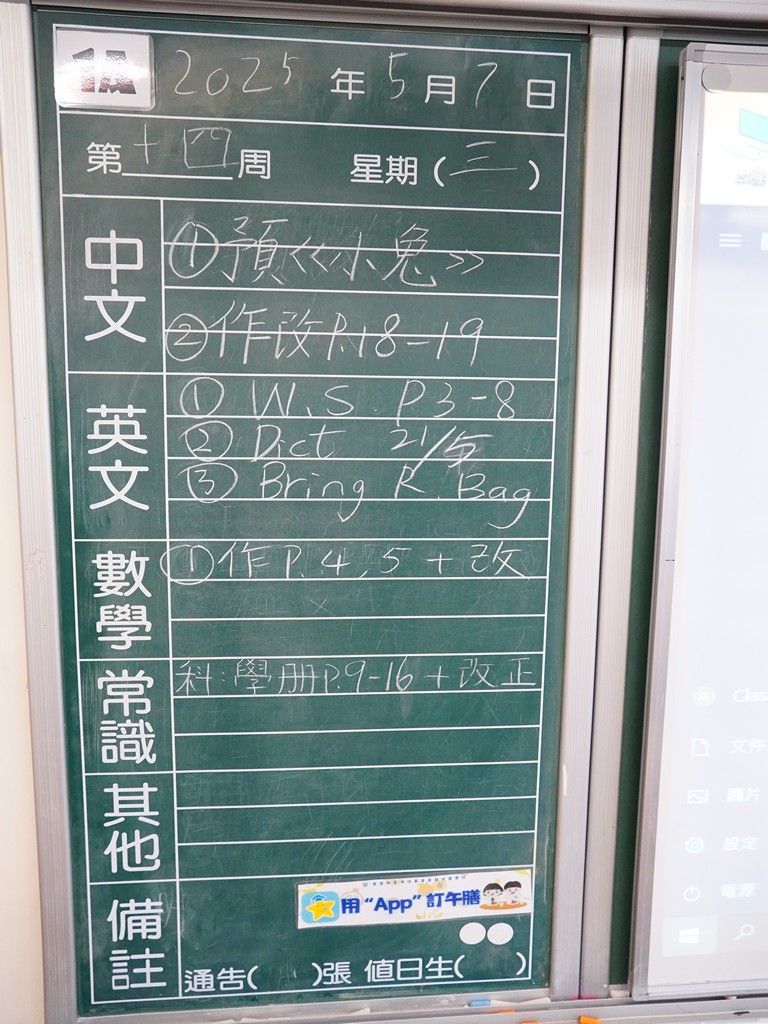 2025年5月7日
第十四周 星期(三)
中文
①預《小兔》
②作改P.18-19
英文
① W.S. P3-8
② Dict 21/5
③ Bring R. Bag
數學
①作P.4,5+改
常識
科:學冊P.9-16+改正
其他
備註
用“App”訂午膳
通告( )張 值日生( )
Clas
文件
圖片
設定
電源